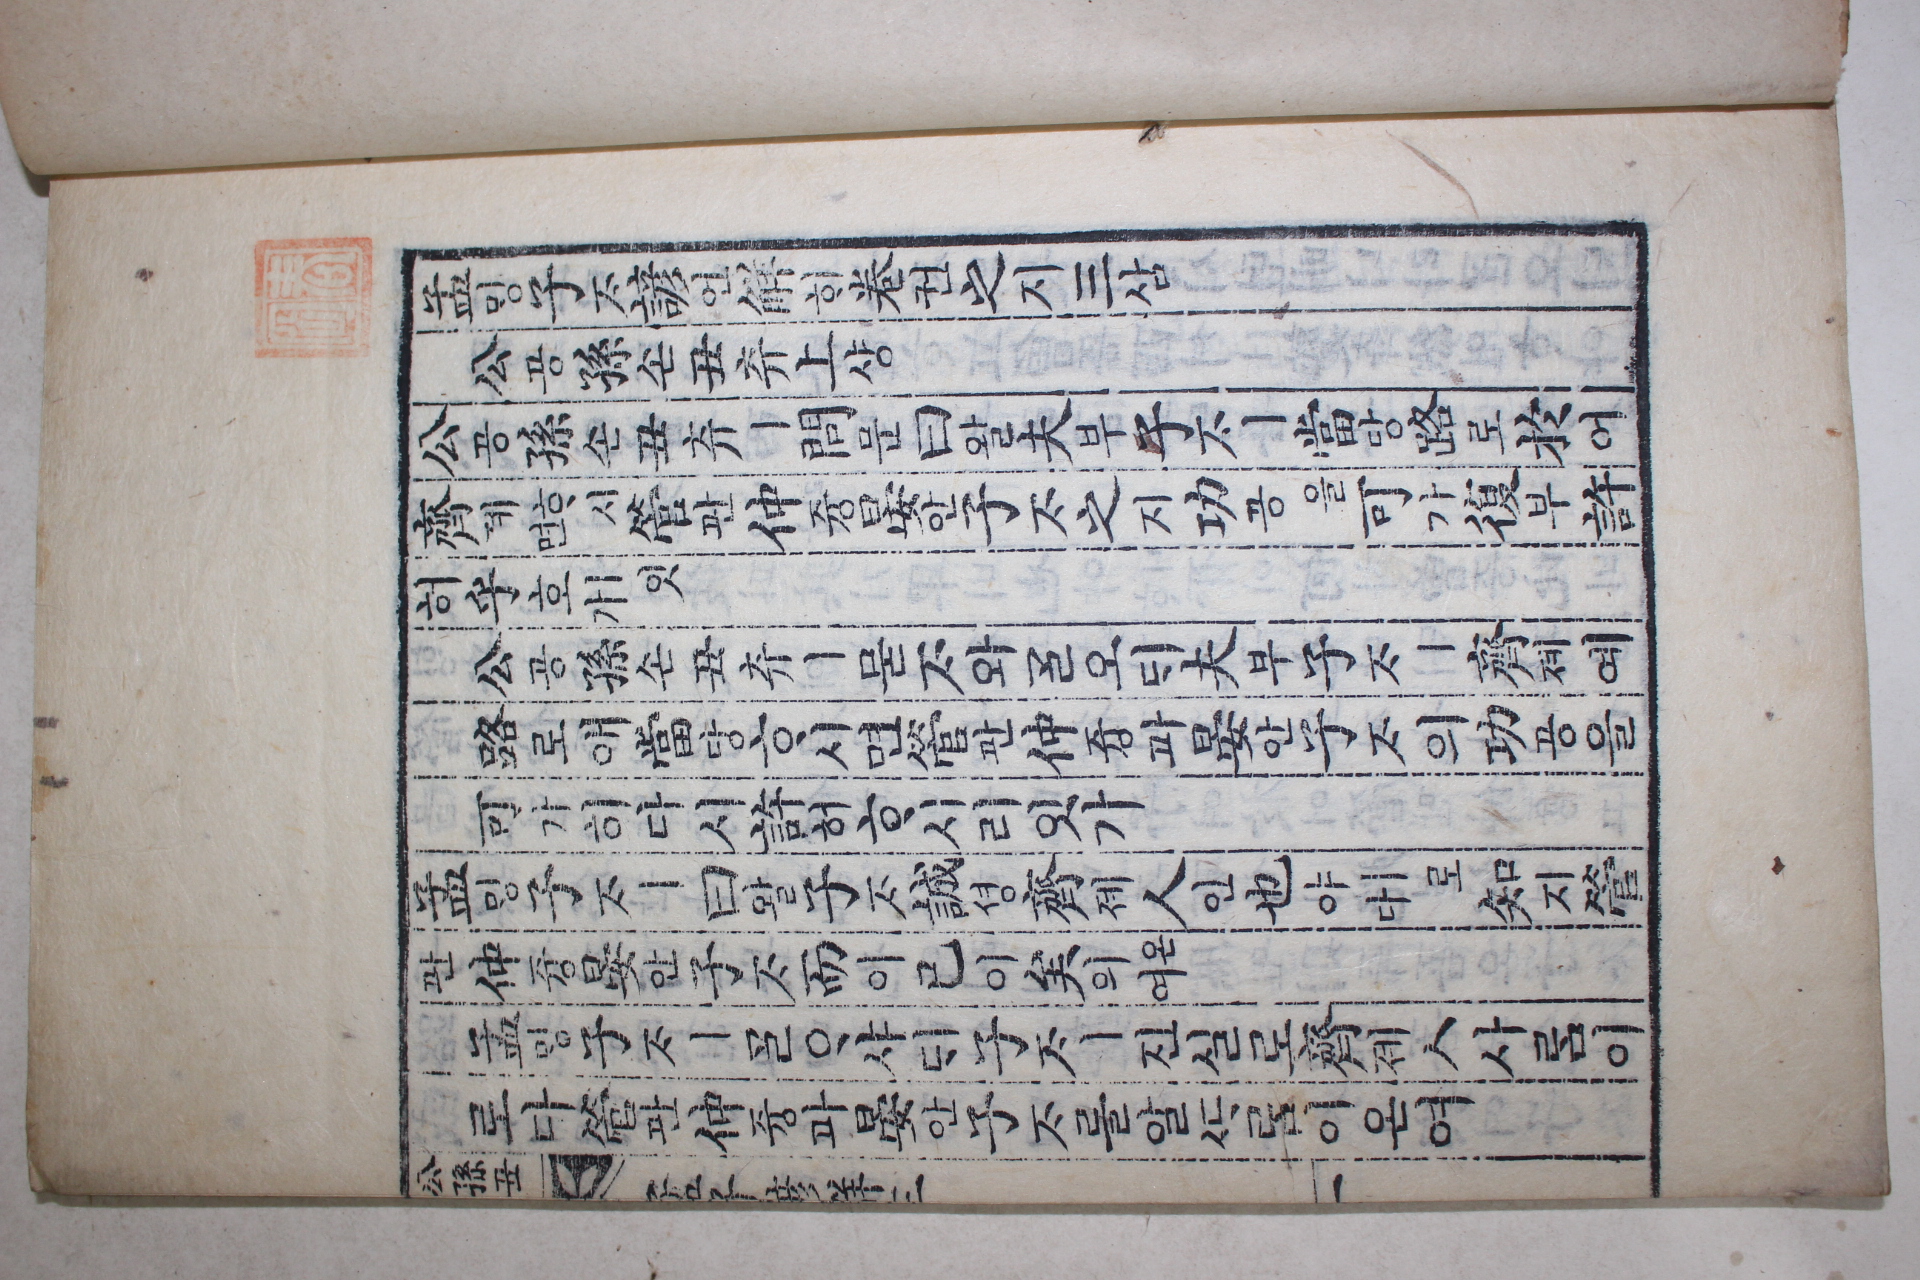 孟밍子ᄌᆞ諺언解ᄒᆡ卷권之지三삼
公공孫손丑츄上샹
公공孫손丑츄ㅣ問문曰왈夫부子ᄌᆞㅣ當당路로於어
齊졔ᄒᆞ시면管관仲즁晏안子ᄌᆞ之지功공을可가復부許
허乎호잇가
公공孫손丑츄ㅣ묻ᄌᆞ와ᄀᆞᆯ오ᄃᆡ夫부子ᄌᆞㅣ齊졔예
路로애當당ᄒᆞ시면管관仲즁과晏안子ᄌᆞ의功공을
可가히다시許허ᄒᆞ시리잇가
孟밍子ᄌᆞㅣ曰왈子ᄌᆞ誠셩齊졔人인也야ㅣ로다知지管
관仲즁晏안子ᄌᆞ而이已이矣의온여
孟밍子ᄌᆞㅣᄀᆞᆯᄋᆞ샤ᄃᆡ子ᄌᆞㅣ진실로齊졔ㅅ사ᄅᆞᆷ이
로다管관仲즁과晏안子ᄌᆞᄅᆞᆯ알ᄯᆞᄅᆞᆷ이온여
公孫丑